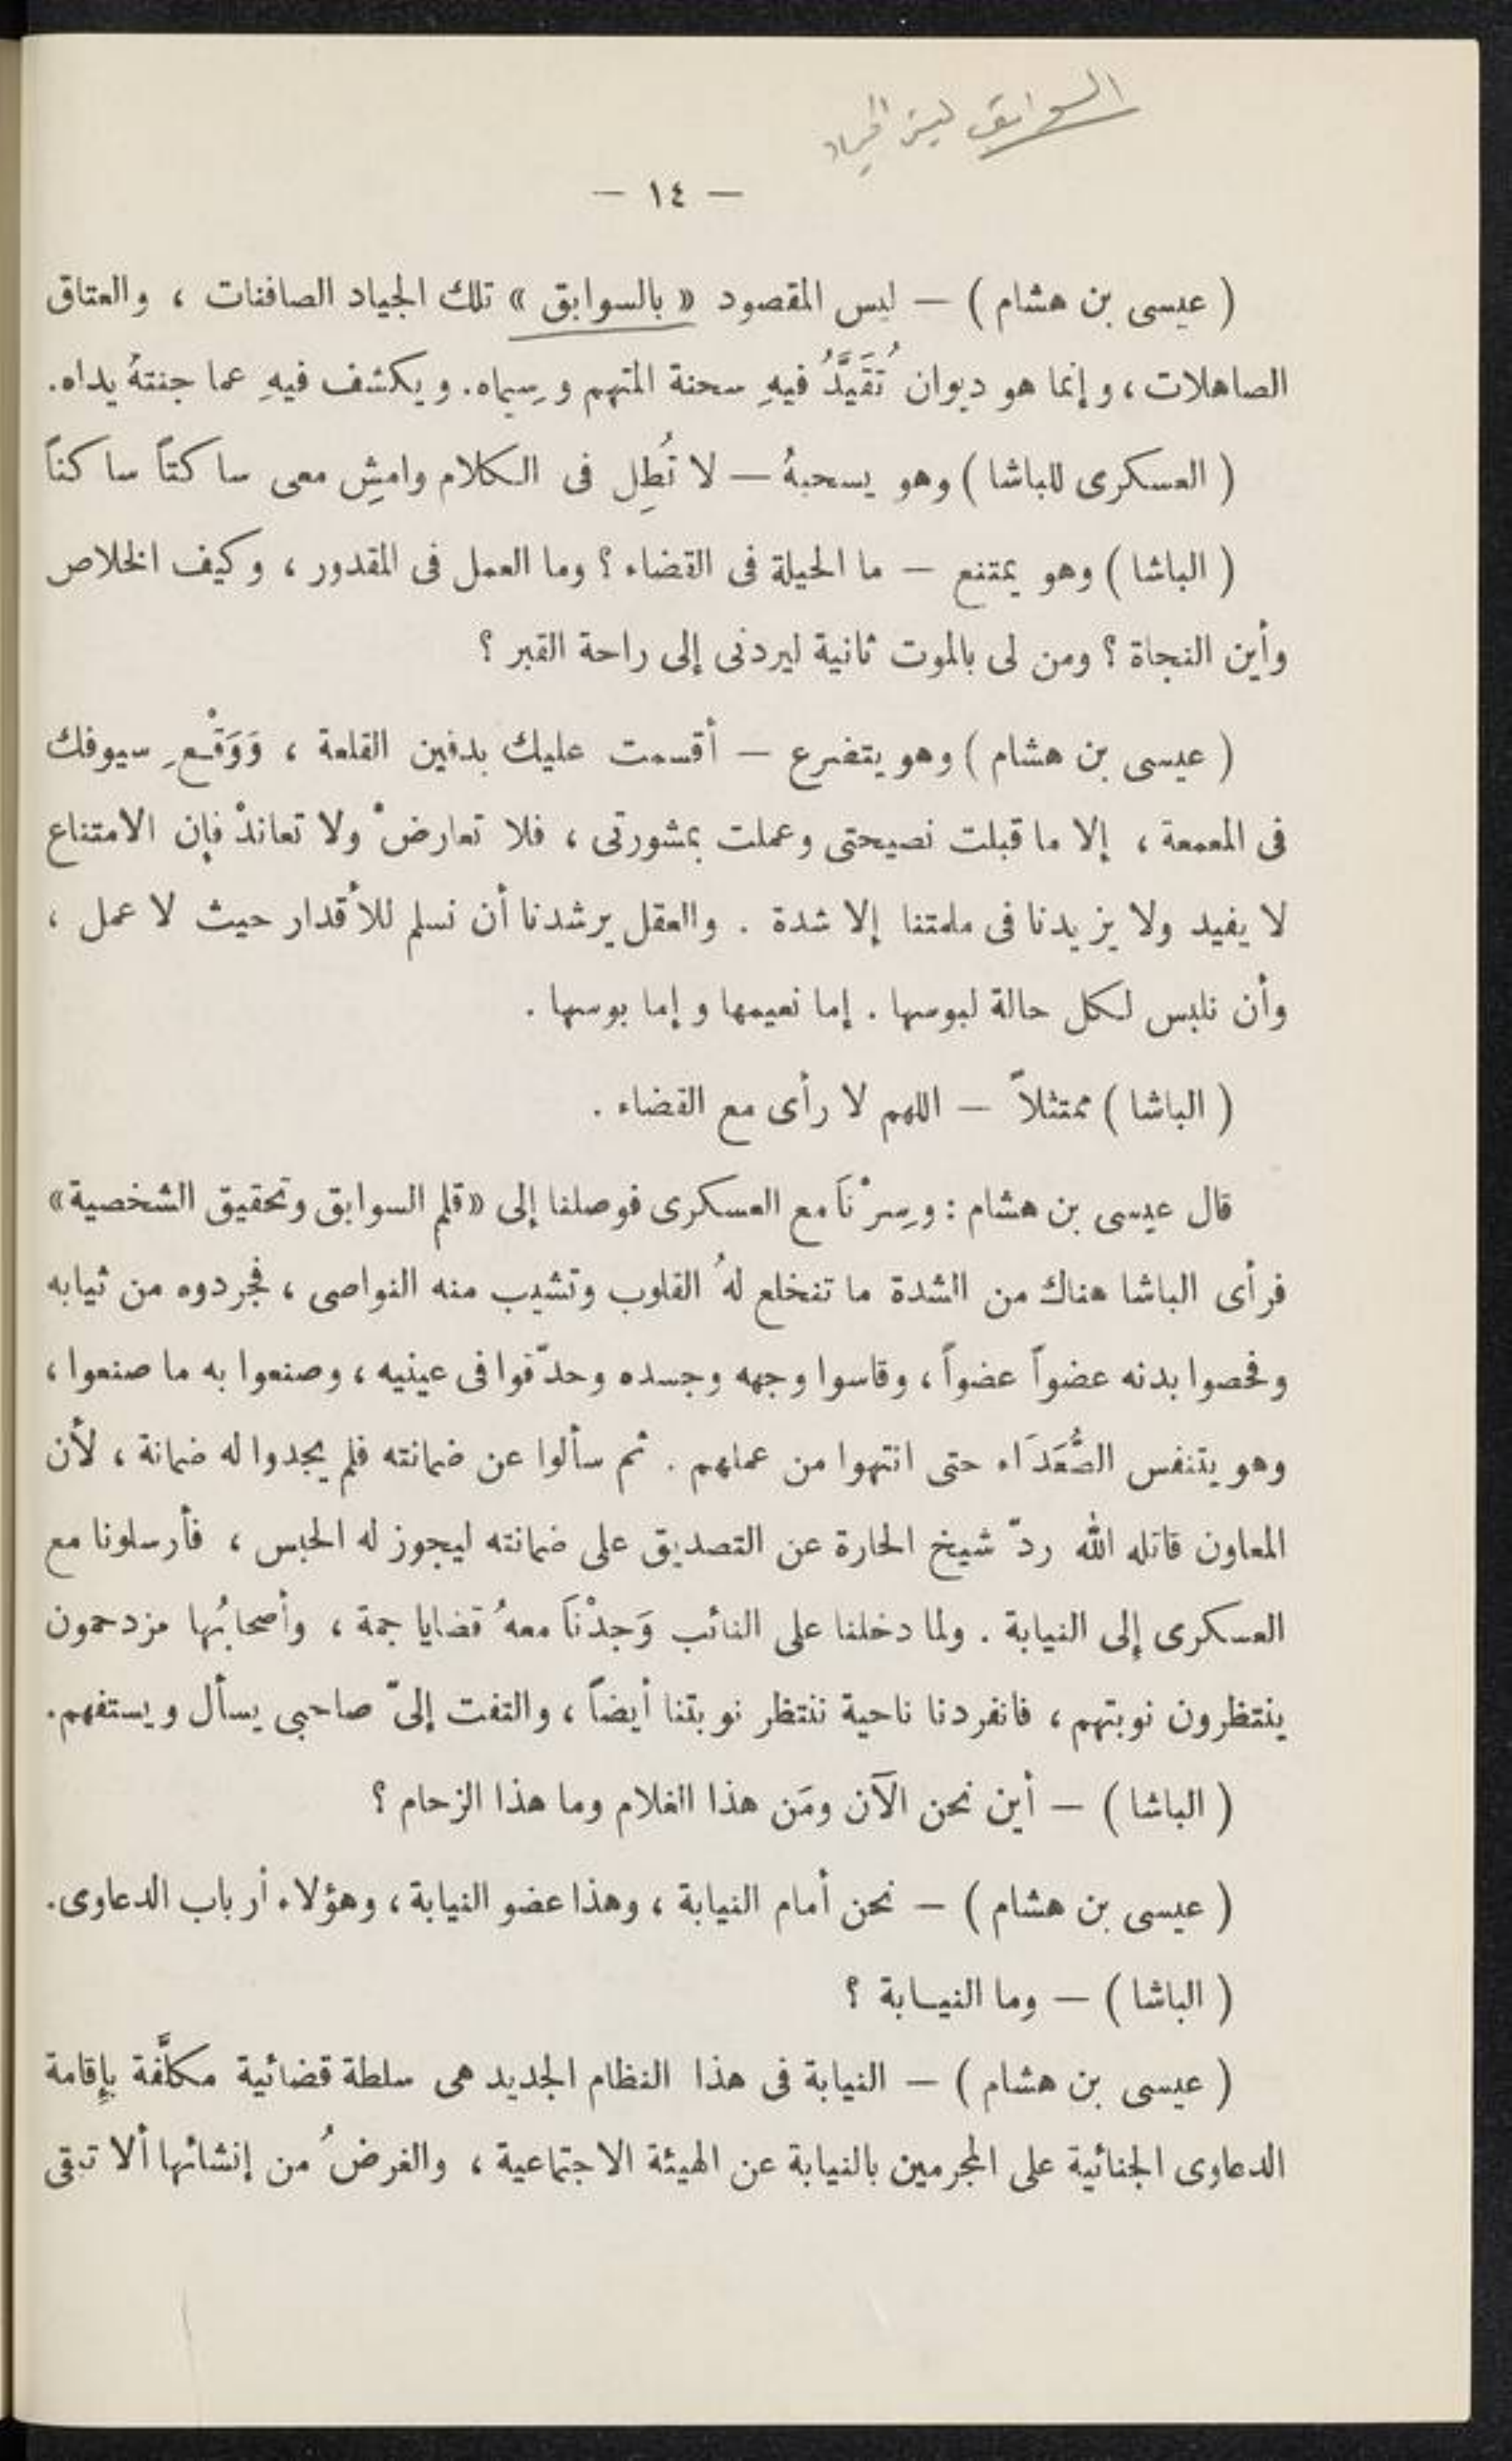 السوابق ليس الجياد
— ١٤ —
( عيسى بن هشام ) — ليس المقصود « بالسوابق » تلك الجياد الصافنات ، والعتاق
الصاهلات ، وإنما هو ديوان تُقَيَّدُ فيهِ سحنة المتهم وسِيماه. ويكشف فيهِ عما جنتهُ يداه.
( العسكرى للباشا ) وهو يسحبهُ — لا تُطِل فى الكلام وامشِ معى ساكتاً ساكناً
( الباشا ) وهو يمتنع — ما الحيلة فى القضاء ؟ وما العمل فى المقدور ، وكيف الخلاص
وأين النجاة ؟ ومن لى بالموت ثانية ليردنى إلى راحة القبر ؟
( عيسى بن هشام ) وهو يتضرع — أقسمت عليك بدفين القلعة ، وَوَقْعِ سيوفك
فى المعمعة ، إلا ما قبلت نصيحتى وعملت بمشورتى ، فلا تعارضْ ولا تعاندْ فإن الامتناع
لا يفيد ولا يزيدنا فى ملمتنا إلا شدة . والعقل يرشدنا أن نسلم للأقدار حيث لا عمل ،
وأن نلبس لكل حالة لبوسها . إما نعيمها وإما بوسها .
( الباشا ) ممتثلاً — اللهم لا رأى مع القضاء .
قال عيسى بن هشام : وسِرْنَا مع العسكرى فوصلنا إلى «قلم السوابق وتحقيق الشخصية»
فرأى الباشا هناك من الشدة ما تنخلع لهُ القلوب وتشيب منه النواصى ، فجردوه من ثيابه
وفحصوا بدنه عضواً عضواً ، وقاسوا وجهه وجسده وحدّقوا فى عينيه ، وصنعوا به ما صنعوا ،
وهو يتنفس الصُّعَدَاء حتى انتهوا من عملهم . ثم سألوا عن ضمانته فلم يجدوا له ضمانة ، لأن
المعاون قاتله الله ردّ شيخ الحارة عن التصديق على ضمانته ليجوز له الحبس ، فأرسلونا مع
العسكرى إلى النيابة . ولما دخلنا على النائب وَجدْنَا معهُ قضايا جمة ، وأصحابُها مزدحمون
ينتظرون نوبتهم ، فانفردنا ناحية ننتظر نوبتنا أيضاً ، والتفت إلىّ صاحبى يسأل ويستفهم.
( الباشا ) — أين نحن الآن ومَن هذا الغلام وما هذا الزحام ؟
( عيسى بن هشام ) — نحن أمام النيابة ، وهذا عضو النيابة ، وهؤلاء أرباب الدعاوى.
( الباشا ) — وما النيــابة ؟
( عيسى بن هشام ) — النيابة فى هذا النظام الجديد هى سلطة قضائية مكلَّفة بإِقامة
الدعاوى الجنائية على المجرمين بالنيابة عن الهيئة الاجتماعية ، والغرضُ من إنشائها ألا تبقى